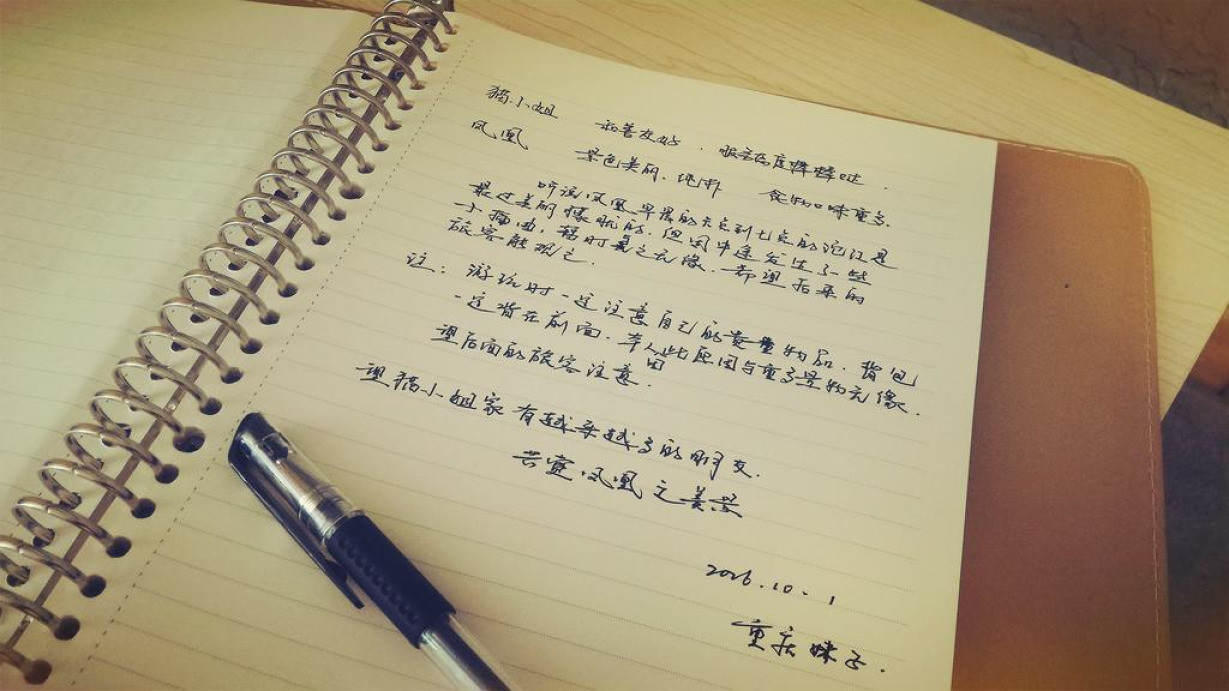 猫小姐 和善友好，服务态度棒棒哒.
凤凰 景色美丽.纯朴 食物口味重多.
听说凤凰早晨的六点到七点的沱江是
最过美丽朦胧的.但因中途发生了一些
小插曲,暂时与之无缘.希望后来的
旅客能观之.
注: 游玩时一定注意自己的贵重物品.背包
一定背在前面.本人因此原因与重多景物无缘.
望后面的旅客注意.
望猫小姐家有越来越多的朋友.
共赏凤凰之美景
2016.10.1
重庆妹子.